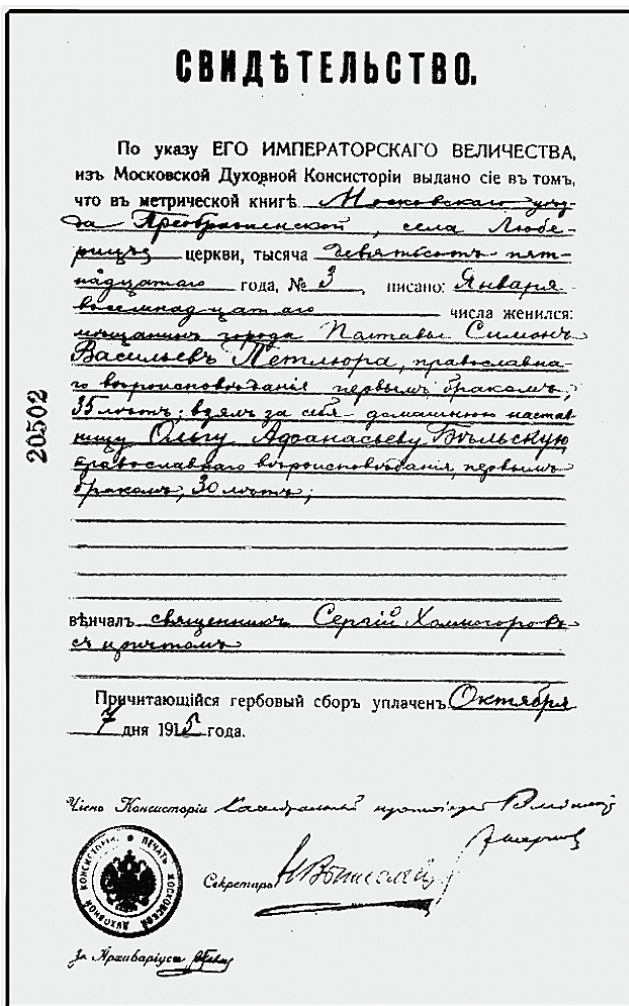 СВИДѢТЕЛЬСТВО.
По указу ЕГО ИМПЕРАТОРСКАГО ВЕЛИЧЕСТВА,
изъ Московской Духовной Консисторіи выдано сіе въ томъ,
что въ метрической книгѣ Московскаго уѣз-
да Преображенской, села Любе-
рицъ церкви, тысяча девятьсотъ пят-
надцатаго года, № 3, писано: Января
восемнадцатаго числа женился:
мѣщанинъ города Полтавы Симонъ
Васильевъ Петлюра, православна-
го вѣроисповѣданія первымъ бракомъ,
35 лѣтъ; взялъ за себя домашнюю настав-
ницу Ольгу Афанасьеву Бѣльскую,
православнаго вѣроисповѣданія, первымъ
бракомъ, 30 лѣтъ;
20502
вѣнчалъ священникъ Сергій Холмогоровъ
съ причтомъ
Причитающійся гербовый сборъ уплаченъ Октября
7 дня 1915 года.
Членъ Консисторіи Каѳедральный протоіерей
Секретарь
ПЕЧАТЬ МОСКОВСКОЙ ДУХОВНОЙ КОНСИСТОРІИ
За Архиваріуса